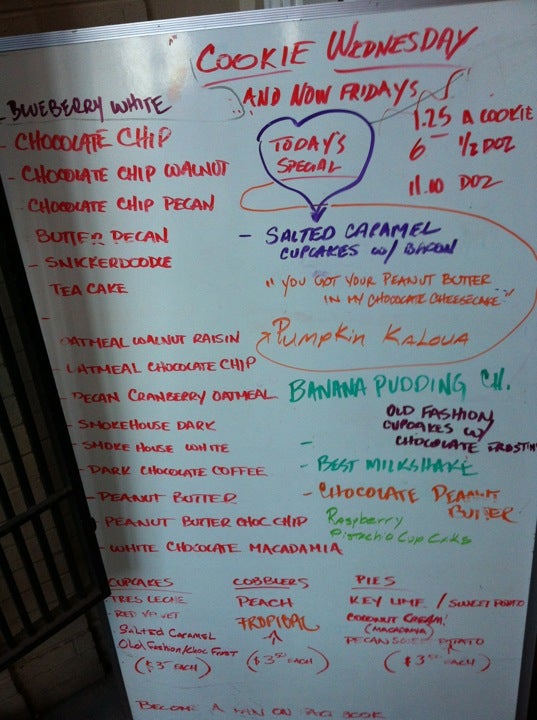 COOKIE WEDNESDAY
AND NOW FRIDAYS
1.25 A COOKIE
6 1/2 DOZ
11.00 DOZ
- BLUEBERRY WHITE
- CHOCOLATE CHIP
- CHOCOLATE CHIP WALNUT
CHOCOLATE CHIP PECAN
BUTTER PECAN
- SNICKERDOODLE
TEA CAKE
-
OATMEAL WALNUT RAISIN
- OATMEAL CHOCOLATE CHIP
- PECAN CRANBERRY OATMEAL
- SMOKEHOUSE DARK
- SMOKE HOUSE WHITE
- DARK CHOCOLATE COFFEE
- PEANUT BUTTER
- PEANUT BUTTER CHOC CHIP
- WHITE CHOCOLATE MACADAMIA
TODAY'S
SPECIAL
- SALTED CARAMEL
CUPCAKES W/ BACON
"YOU GOT YOUR PEANUT BUTTER
IN MY CHOCOLATE CHEESECAKE"
PUMPKIN KALOUA
BANANA PUDDING CH.
OLD FASHION
CUPCAKES W/
- CHOCOLATE FROSTIN
- BEST MILKSHAKE
- CHOCOLATE PEANUT
BUTTER
Raspberry
Pistachio Cup Cakes
CUPCAKES
TRES LECHE
- RED VELVET
Salted Caramel
Old Fashion/Choc Frost
($3 EACH)
COBBLERS
PEACH
TROPICAL
($3 50 EACH)
PIES
KEY LIME / SWEET POTATO
COCONUT CREAM
(MACADAMIA)
PECAN SWEET POTATO
($3 50 EACH)
BECOME A FAN ON FACEBOOK